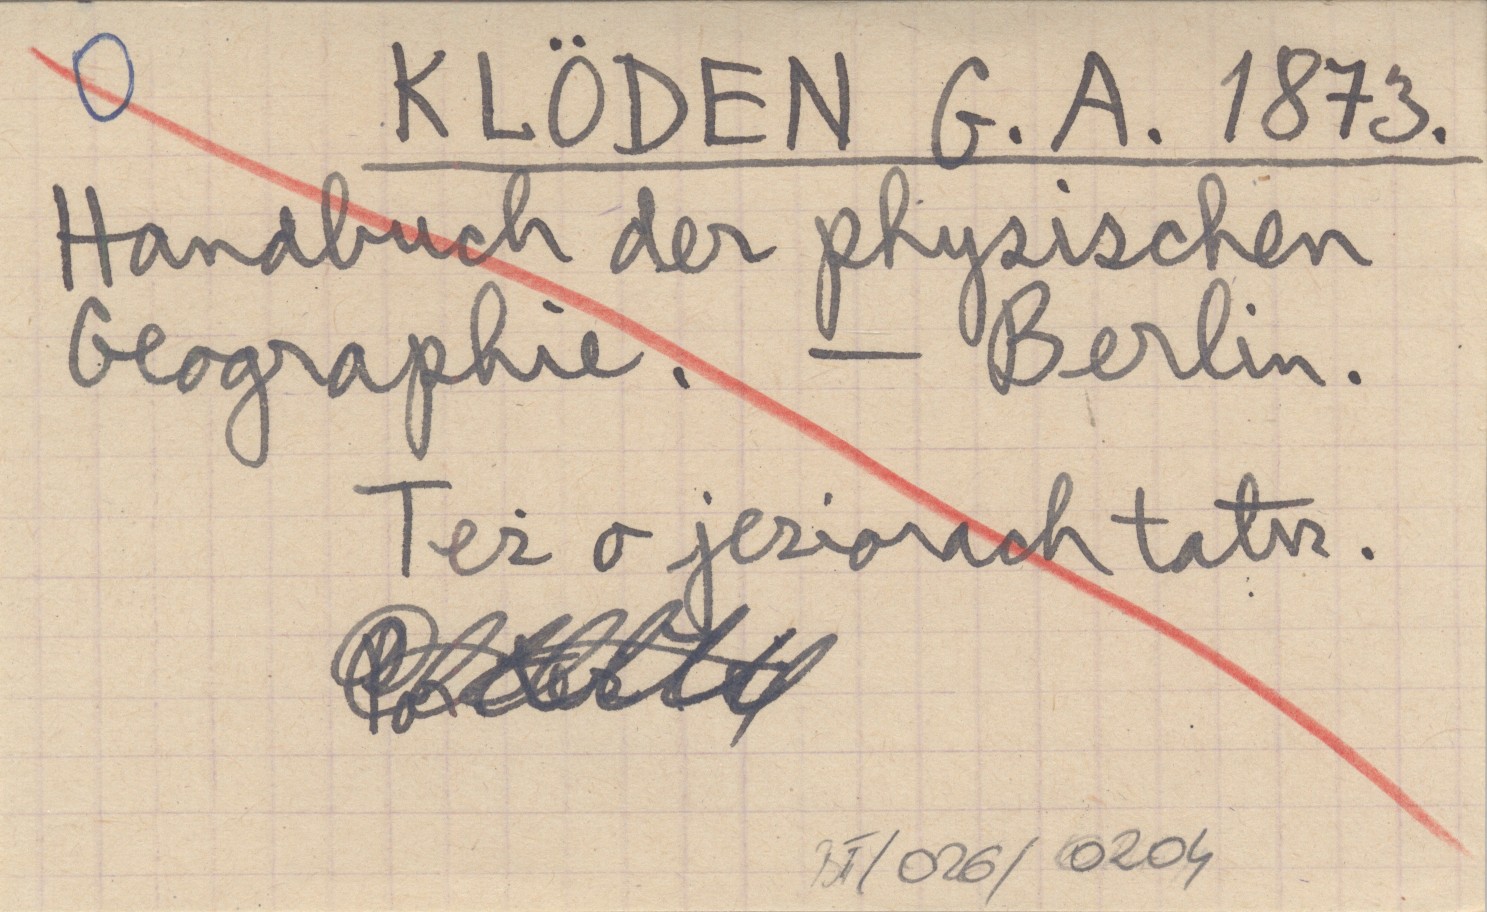 O KLÖDEN G. A. 1873.
Handbuch der physischen
Geographie. — Berlin.
Też o jeziorach tatrz.
BI/026/0204